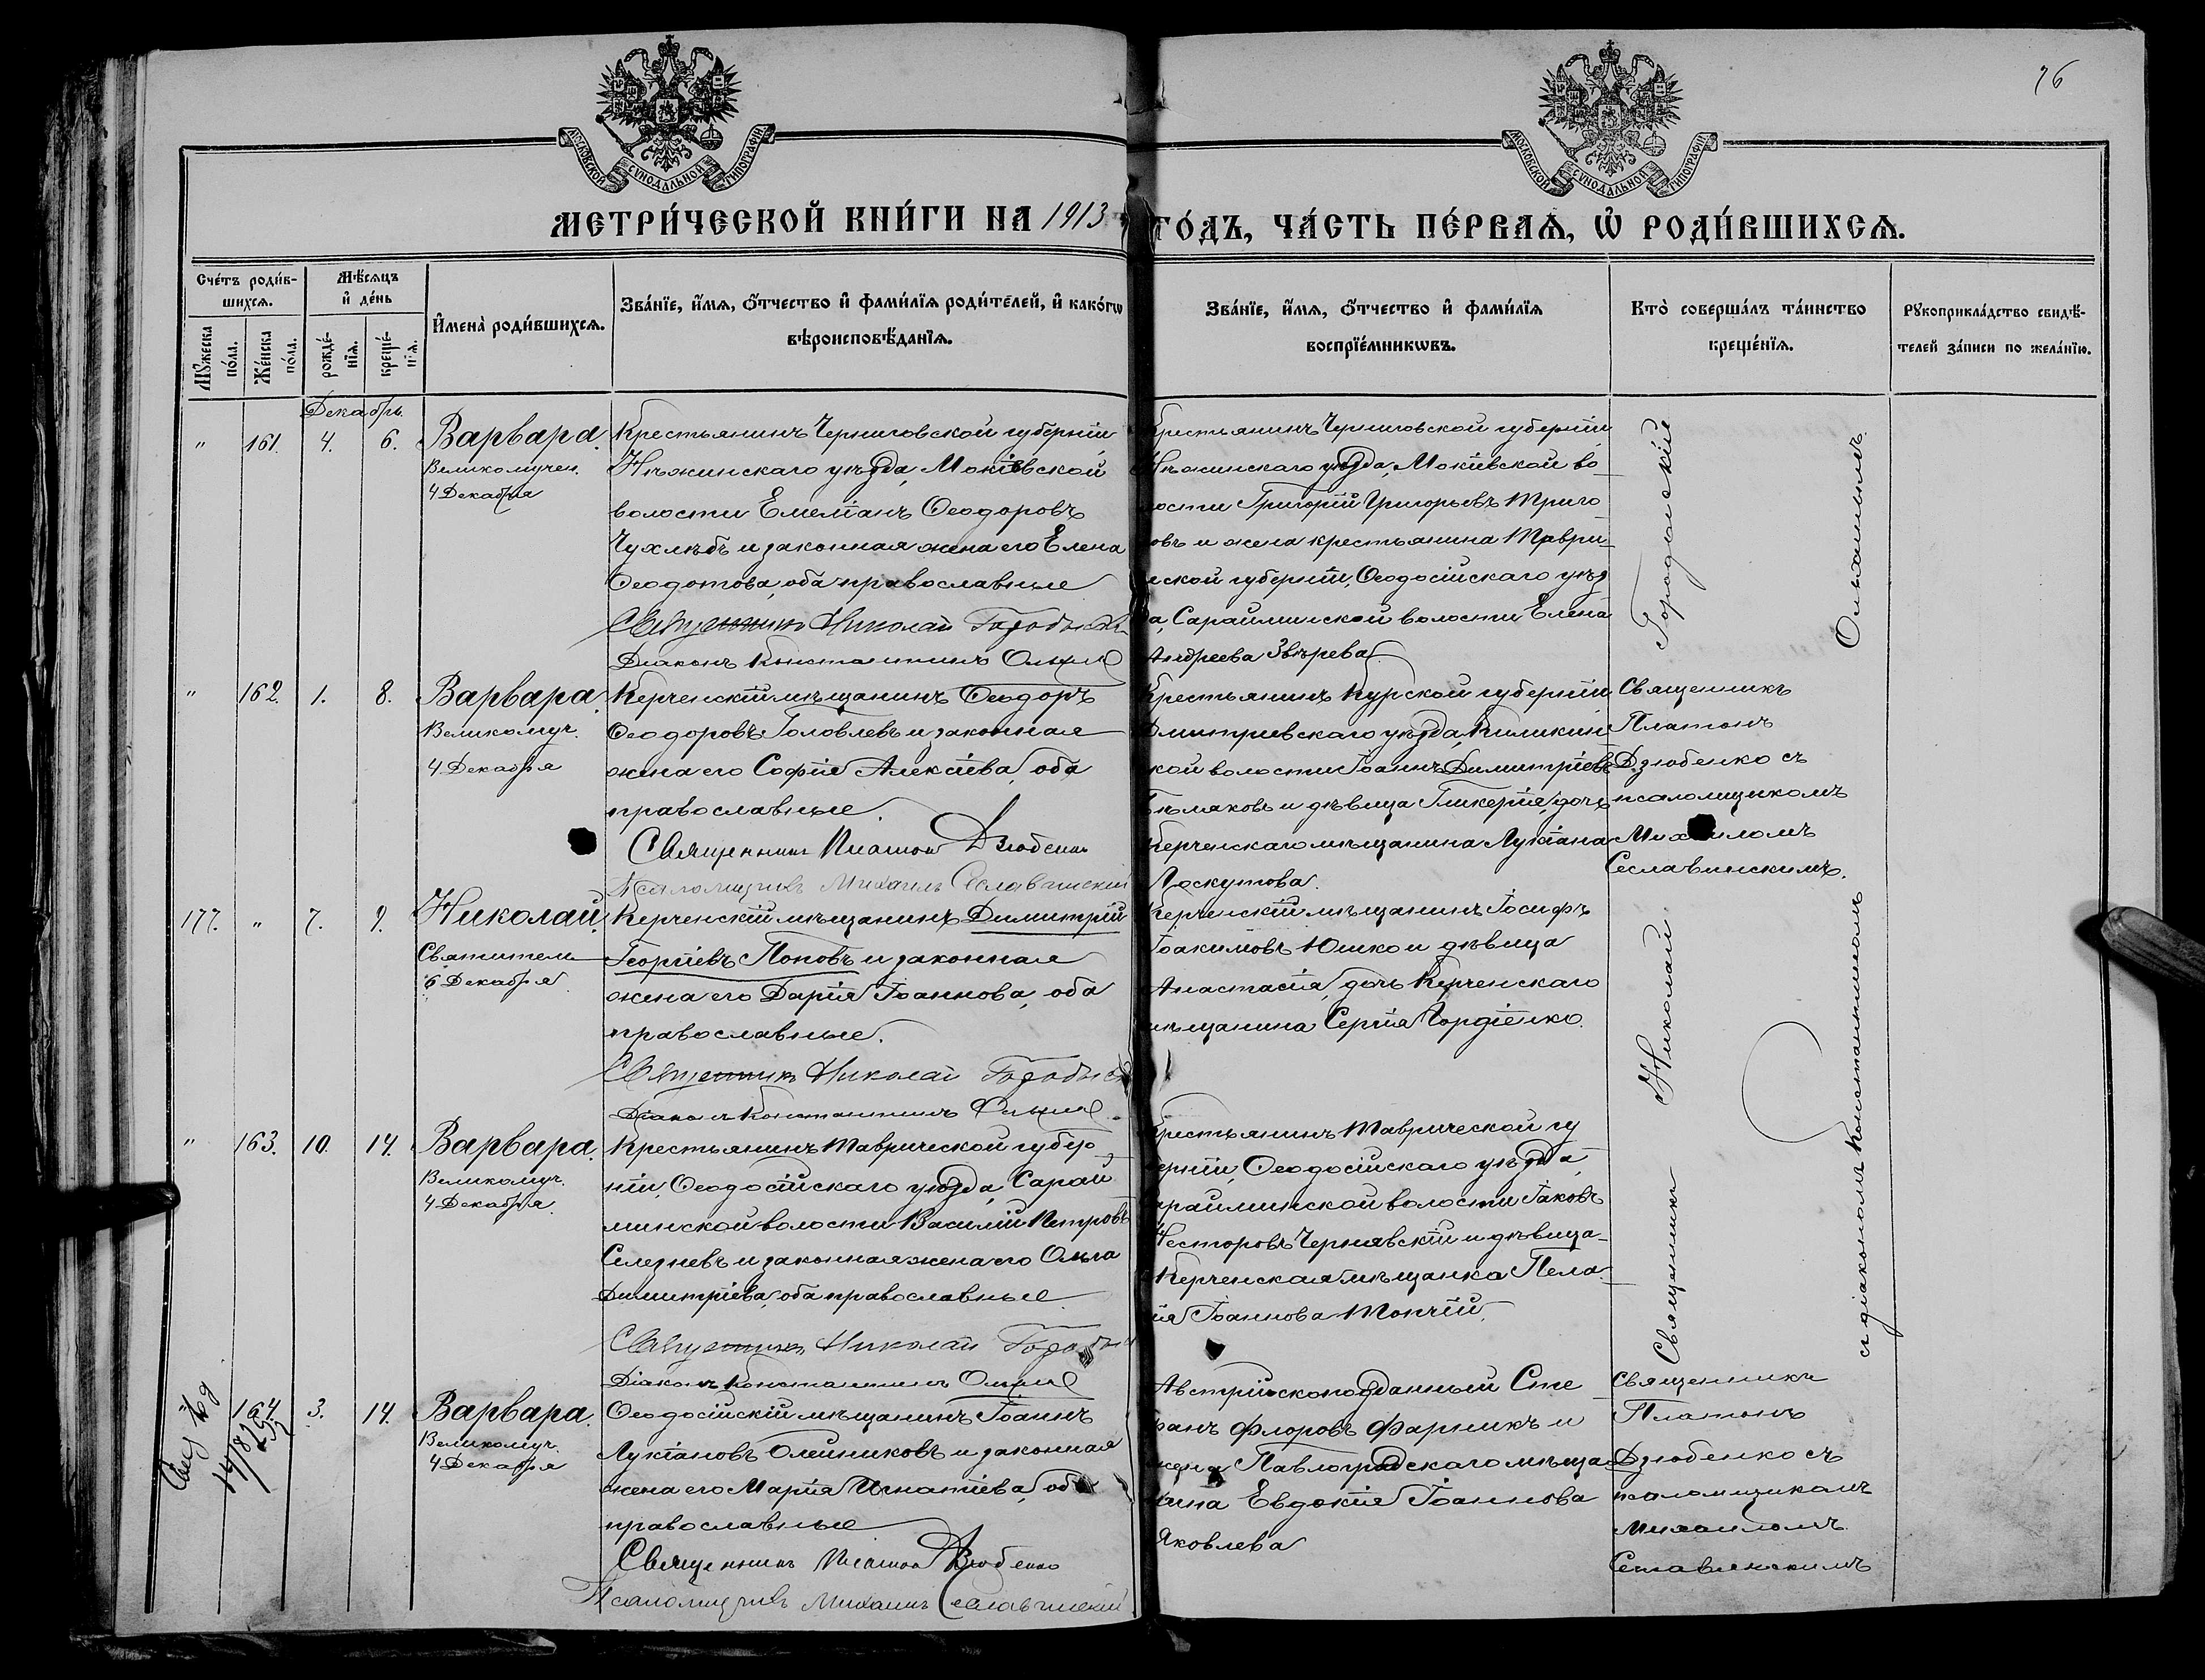 76
МОСКОВСКОЙ СѴНОДАЛЬНОЙ ТИПОГРАФІИ
МОСКОВСКОЙ СѴНОДАЛЬНОЙ ТИПОГРАФІИ
МЕТРИ́ЧЕСКОЙ КНИ́ГИ НА 1913 ГО́ДЪ, ЧА́СТЬ ПЕ́РВАѦ, Ѡ҆ РОДИ́ВШИХСѦ.
Сче́тъ роди́в-
шихсѧ.
Мꙋ́жеска
по́ла.
Же́нска
по́ла.
Мѣ́сѧцъ
и҆ де́нь
рожде́-
нїѧ.
креще́-
нїѧ.
И҆мена̀ роди́вшихсѧ.
Зва́нїе, и҆́мѧ, ѻ҆́тчество и҆ фами́лїѧ роди́телей, и҆ како́гѡ
вѣроисповѣ́данїѧ.
Зва́нїе, и҆́мѧ, ѻ҆́тчество и҆ фами́лїѧ
воспрїе́мникѡвъ.
Кто̀ соверша́лъ та́инство
креще́нїѧ.
Рꙋкоприкла́дство свидѣ́-
телей за́писи по жела́нїю.
Декабрь.
" 161. 4. 6. Варвара.
Великомучен.
4 Декабря
Крестьянинъ Черниговской губерніи
Нѣжинскаго уѣзда, Мокіевской
волости Емеліанъ Ѳеодоровъ
Чухлѣбъ и законная жена его Елена
Ѳеодотова, оба православные
Священникъ Николай
Діаконъ Константинъ
Крестьянинъ Черниговской губерніи
Нѣжинскаго уѣзда, Мокіевской во
лости Григорій Григорьевъ Триго
овъ и жена крестьянина Таври-
ческой губерніи, Ѳеодосійскаго уѣз
да, Сарайминской волости Елена
Андреева Звѣрева.
" 162. 1. 8. Варвара.
Великомуч.
4 Декабря
Керченскій мѣщанинъ Ѳеодоръ
Ѳеодоровъ Головлевъ и законная
жена его Софія Алексіева, оба
православные.
Священникъ Платонъ Дзюбенко
Псаломщикъ Михаилъ Сеславинскій
Крестьянинъ Курской губерніи
Дмитріевскаго уѣзда,
кой волости Іоаннъ Димитріевъ
и дѣвица Гликерія, дочь
Керченскаго мѣщанина Лукіана
Лоскутова.
Священникъ
Платонъ
Дзюбенко съ
псаломщикомъ
Михаиломъ
Сеславинскимъ.
177. " 7. 9. Николай.
Святителя
6 Декабря
Керченскій мѣщанинъ Димитрій
Георгіевъ Поповъ и законная
жена его Дарія Іоаннова, оба
православные.
Священникъ Николай
Діаконъ Константинъ
Керченскій мѣщанинъ Іосифъ
Іоакимовъ Юшко и дѣвица
Анастасія, дочь Керченскаго
мѣщанина Сергія Гордіенко.
" 163. 10. 14. Варвара.
Великомуч.
4 Декабря.
Крестьянинъ Таврической губер
ніи, Ѳеодосійскаго уѣзда, Сарай
минской волости Василій Петровъ
Селезневъ и законная жена его Ольга
Димитріева, оба православные.
Священникъ Николай
Діаконъ Константинъ
Крестьянинъ Таврической гу
берніи, Ѳеодосійскаго уѣзда,
Сарайминской волости Іаковъ
Несторовъ Чернявскій и дѣвица
Керченская мѣщанка Пела
гія Іоаннова Топчій.
Священникъ Николай Городыскій
съ діакономъ Константиномъ
164 3. 14. Варвара.
Великомуч.
4 Декабря
Ѳеодосійскій мѣщанинъ Іоаннъ
Лукіановъ Олейниковъ и законная
жена его Марія Игнатіева, оба
православные
Священникъ Платонъ Дзюбенко
Псаломщикъ Михаилъ Сеславинскій
Австрійскоподданный Сте
фанъ Флоровъ Фарникъ и
жена Павлоградскаго мѣща
нина Евдокія Іоаннова
Яковлева
Священникъ
Платонъ
Дзюбенко съ
псаломщикомъ
Михаиломъ
Сеславинскимъ